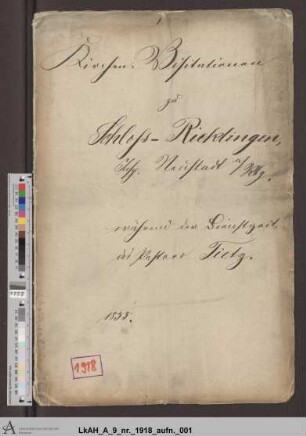 Kirchen-Visitationen
zu
Schloß-Ricklingen,
Insp. Neustadt a/Rbg.
während der Dienstzeit
des Pastors Tietz.
1888.
1918
LkAH_A_9_nr._1918_aufn._001